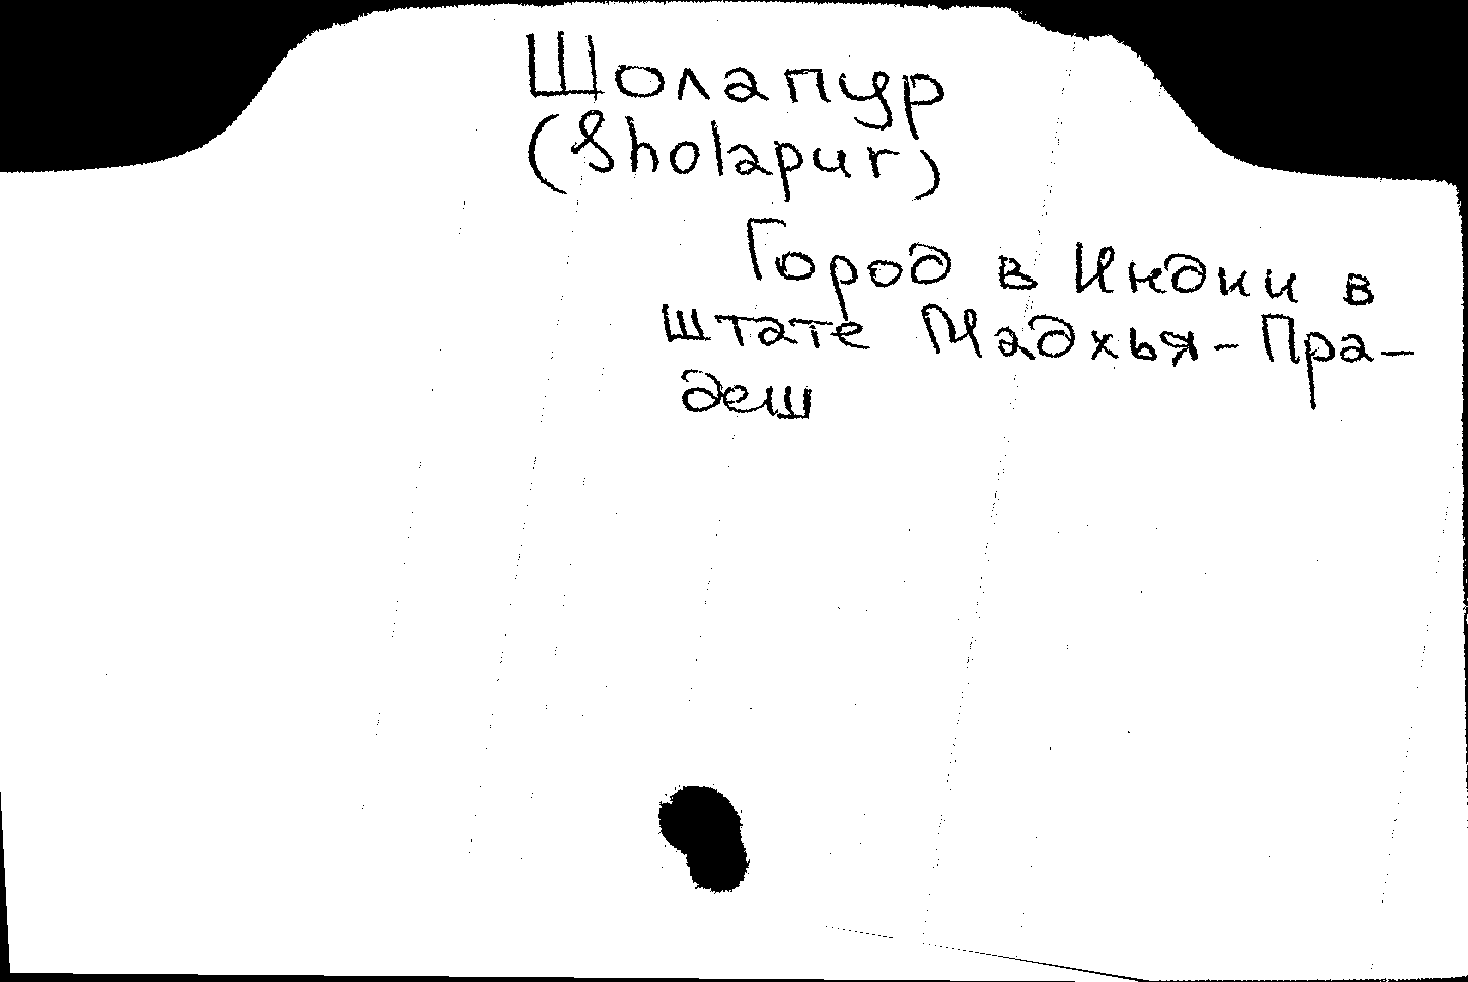 Шолапур
(Sholapur)
Город в Индии в
штате Мадхья-Пра-
деш